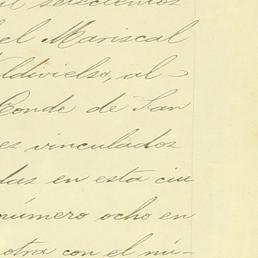 il seiscientos
el Mariscal
ldivielso, al-
Conde de San
es vinculados
das en esta ciu
número ocho en
otra con el nú-